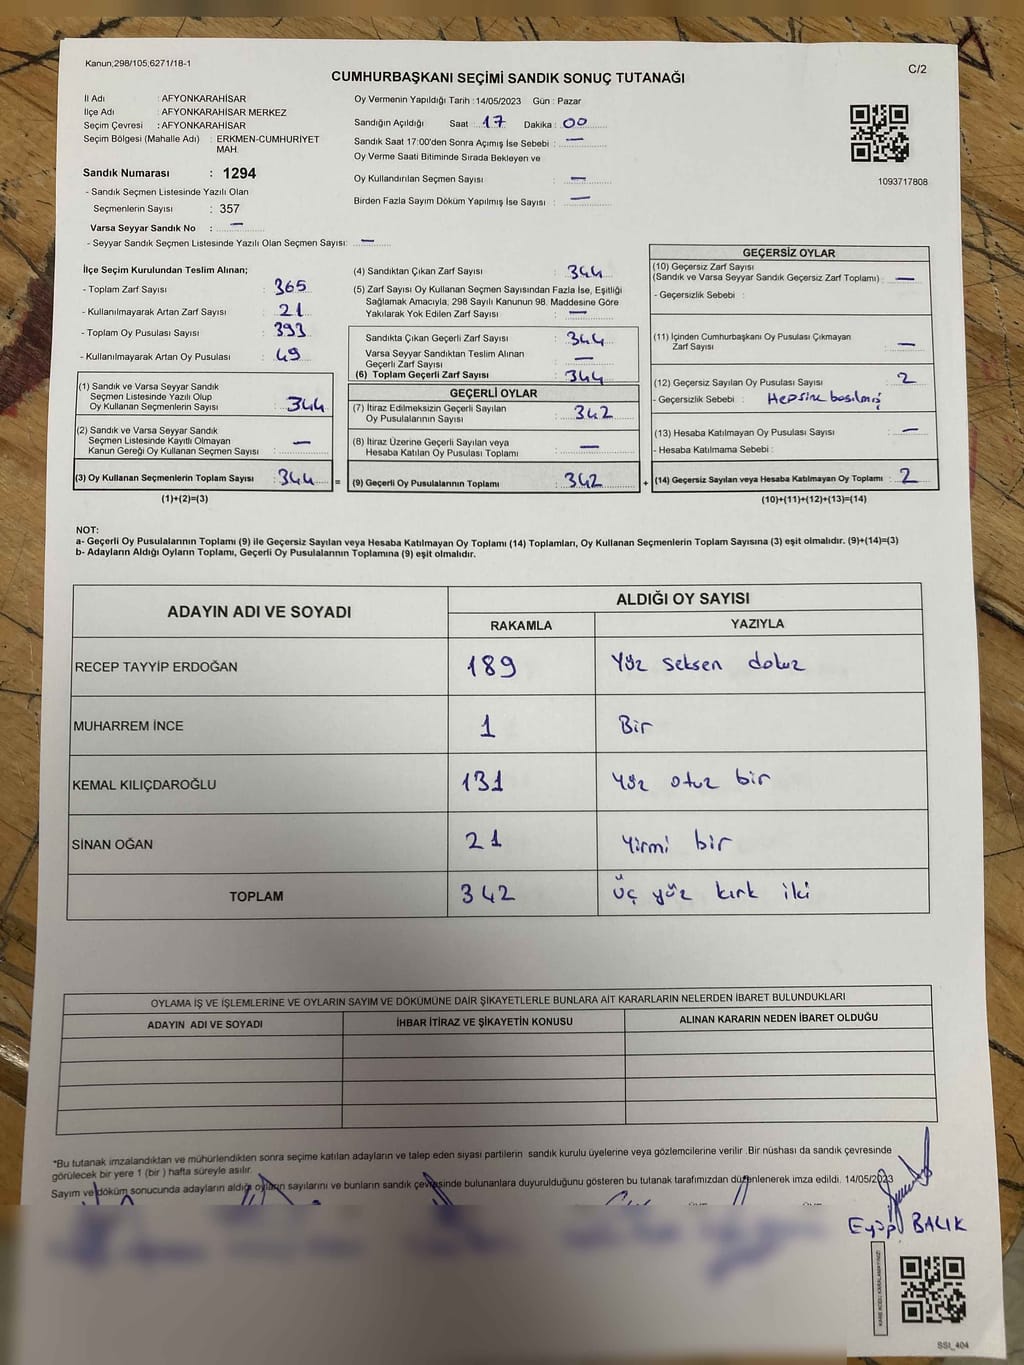 Kanun;298/105;6271/18-1
CUMHURBAŞKANI SEÇİMİ SANDIK SONUÇ TUTANAĞI
C/2
İl Adı : AFYONKARAHİSAR
İlçe Adı : AFYONKARAHİSAR MERKEZ
Seçim Çevresi : AFYONKARAHİSAR
Seçim Bölgesi (Mahalle Adı) : ERKMEN-CUMHURİYET
MAH.
Sandık Numarası : 1294
- Sandık Seçmen Listesinde Yazılı Olan
Seçmenlerin Sayısı : 357
Varsa Seyyar Sandık No : —
- Seyyar Sandık Seçmen Listesinde Yazılı Olan Seçmen Sayısı: —
Oy Vermenin Yapıldığı Tarih : 14/05/2023 Gün : Pazar
Sandığın Açıldığı Saat : 17 Dakika : 00
Sandık Saat 17:00'den Sonra Açımış İse Sebebi : —
Oy Verme Saati Bitiminde Sırada Bekleyen ve
Oy Kullandırılan Seçmen Sayısı : —
Birden Fazla Sayım Döküm Yapılmış İse Sayısı : —
1093717808
İlçe Seçim Kurulundan Teslim Alınan;
- Toplam Zarf Sayısı : 365
- Kullanılmayarak Artan Zarf Sayısı : 21
- Toplam Oy Pusulası Sayısı : 393
- Kullanılmayarak Artan Oy Pusulası : 49
(1) Sandık ve Varsa Seyyar Sandık
Seçmen Listesinde Yazılı Olup
Oy Kullanan Seçmenlerin Sayısı : 344
(2) Sandık ve Varsa Seyyar Sandık
Seçmen Listesinde Kayıtlı Olmayan
Kanun Gereği Oy Kullanan Seçmen Sayısı : —
(3) Oy Kullanan Seçmenlerin Toplam Sayısı : 344 =
(1)+(2)=(3)
(4) Sandıktan Çıkan Zarf Sayısı : 344
(5) Zarf Sayısı Oy Kullanan Seçmen Sayısından Fazla İse, Eşitliği
Sağlamak Amacıyla, 298 Sayılı Kanunun 98. Maddesine Göre
Yakılarak Yok Edilen Zarf Sayısı : —
Sandıkta Çıkan Geçerli Zarf Sayısı : 344
Varsa Seyyar Sandıktan Teslim Alınan
Geçerli Zarf Sayısı : —
(6) Toplam Geçerli Zarf Sayısı : 344
GEÇERLİ OYLAR
(7) İtiraz Edilmeksizin Geçerli Sayılan
Oy Pusulalarının Sayısı : 342
(8) İtiraz Üzerine Geçerli Sayılan veya
Hesaba Katılan Oy Pusulası Toplamı : —
(9) Geçerli Oy Pusulalarının Toplamı : 342 +
GEÇERSİZ OYLAR
(10) Geçersiz Zarf Sayısı
(Sandık ve Varsa Seyyar Sandık Geçersiz Zarf Toplamı) : —
- Geçersizlik Sebebi :
(11) İçinden Cumhurbaşkanı Oy Pusulası Çıkmayan
Zarf Sayısı : —
(12) Geçersiz Sayılan Oy Pusulası Sayısı : 2
- Geçersizlik Sebebi : Hepsine basılmış
(13) Hesaba Katılmayan Oy Pusulası Sayısı : —
- Hesaba Katılmama Sebebi :
(14) Geçersiz Sayılan veya Hesaba Katılmayan Oy Toplamı : 2
(10)+(11)+(12)+(13)=(14)
NOT:
a- Geçerli Oy Pusulalarının Toplamı (9) ile Geçersiz Sayılan veya Hesaba Katılmayan Oy Toplamı (14) Toplamları, Oy Kullanan Seçmenlerin Toplam Sayısına (3) eşit olmalıdır. (9)+(14)=(3)
b- Adayların Aldığı Oyların Toplamı, Geçerli Oy Pusulalarının Toplamına (9) eşit olmalıdır.
ADAYIN ADI VE SOYADI
ALDIĞI OY SAYISI
RAKAMLA YAZIYLA
RECEP TAYYİP ERDOĞAN 189 Yüz seksen dokuz
MUHARREM İNCE 1 Bir
KEMAL KILIÇDAROĞLU 131 Yüz otuz bir
SİNAN OĞAN 21 Yirmi bir
TOPLAM 342 üç yüz kırk iki
OYLAMA İŞ VE İŞLEMLERİNE VE OYLARIN SAYIM VE DÖKÜMÜNE DAİR ŞİKAYETLERLE BUNLARA AİT KARARLARIN NELERDEN İBARET BULUNDUKLARI
ADAYIN ADI VE SOYADI İHBAR İTİRAZ VE ŞİKAYETİN KONUSU ALINAN KARARIN NEDEN İBARET OLDUĞU
*Bu tutanak imzalandıktan ve mühürlendikten sonra seçime katılan adayların ve talep eden siyasi partilerin sandık kurulu üyelerine veya gözlemcilerine verilir .Bir nüshası da sandık çevresinde
görülecek bir yere 1 (bir ) hafta süreyle asılır.
Sayım ve döküm sonucunda adayların aldığı oyların sayılarını ve bunların sandık çevresinde bulunanlara duyurulduğunu gösteren bu tutanak tarafımızdan düzenlenerek imza edildi. 14/05/2023
Eyüp BALIK
KARE KODU KARALAMAYINIZ!
SSI_404